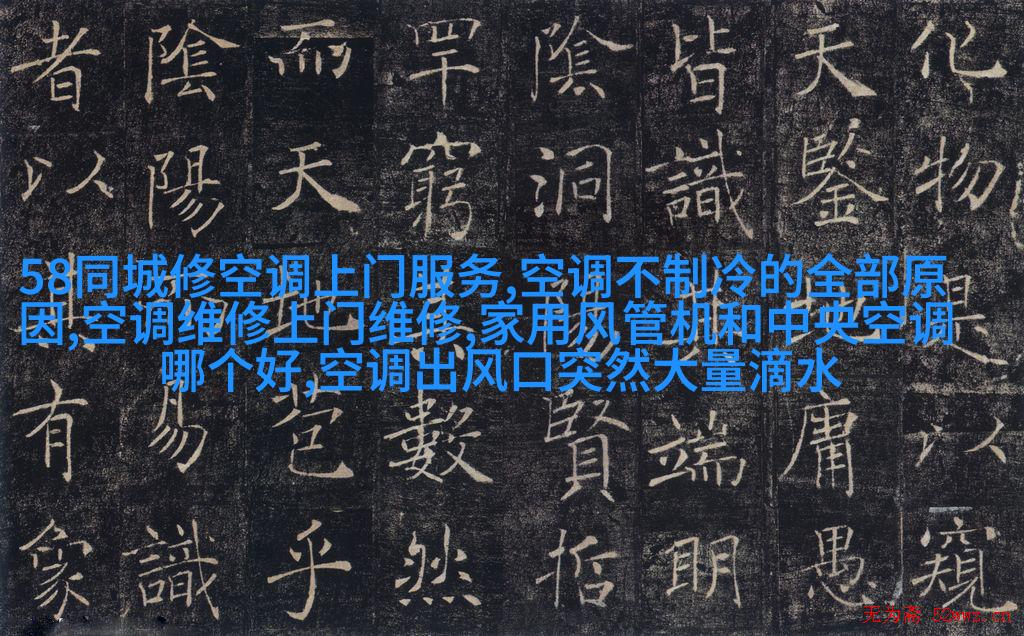 化物是以窺
天鑒庸愚
皆識端明
陰洞陽賢哲
罕窮數然
而天地苞乎
陰陽易識
者以其有象
58同城修空调上门服务,空调不制冷的全部原
因,空调维修上门维修,家用风管机和中央空调
哪个好,空调出风口突然大量滴水
无为斋 52wwz.cn